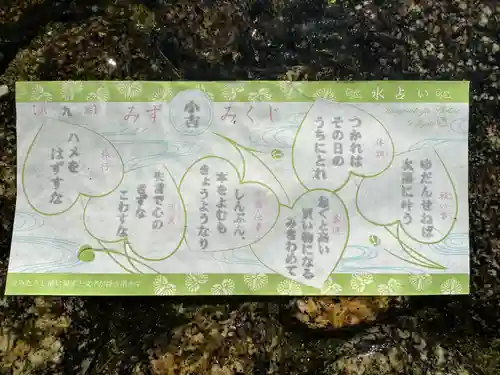 水占い
みずおみくじ
小吉
九
ゆだんせねば
大願に叶う
体調
つかれは
その日の
うちにとれ
安くと高い
買い物になる
みきわめて
仕事
しんぶん、
本をよむも
きょうようなり
失言で心の
きずな
こわすな
旅行
ハメを
はずすな